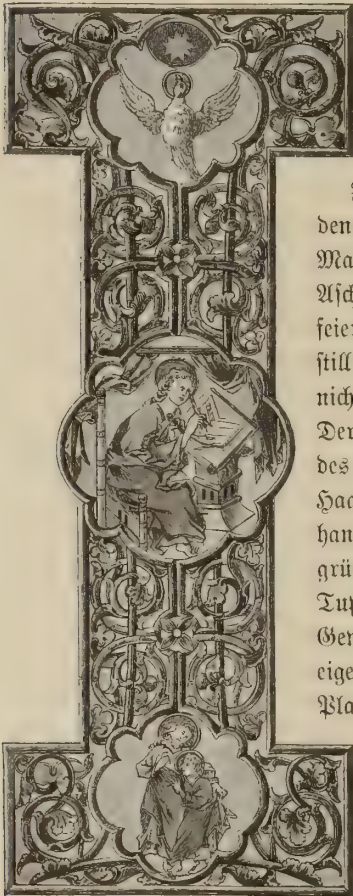 den
Ma
Asch
feier
still
nich
Der
des
Haa
han
grü
Tup
Gen
eige
Pla